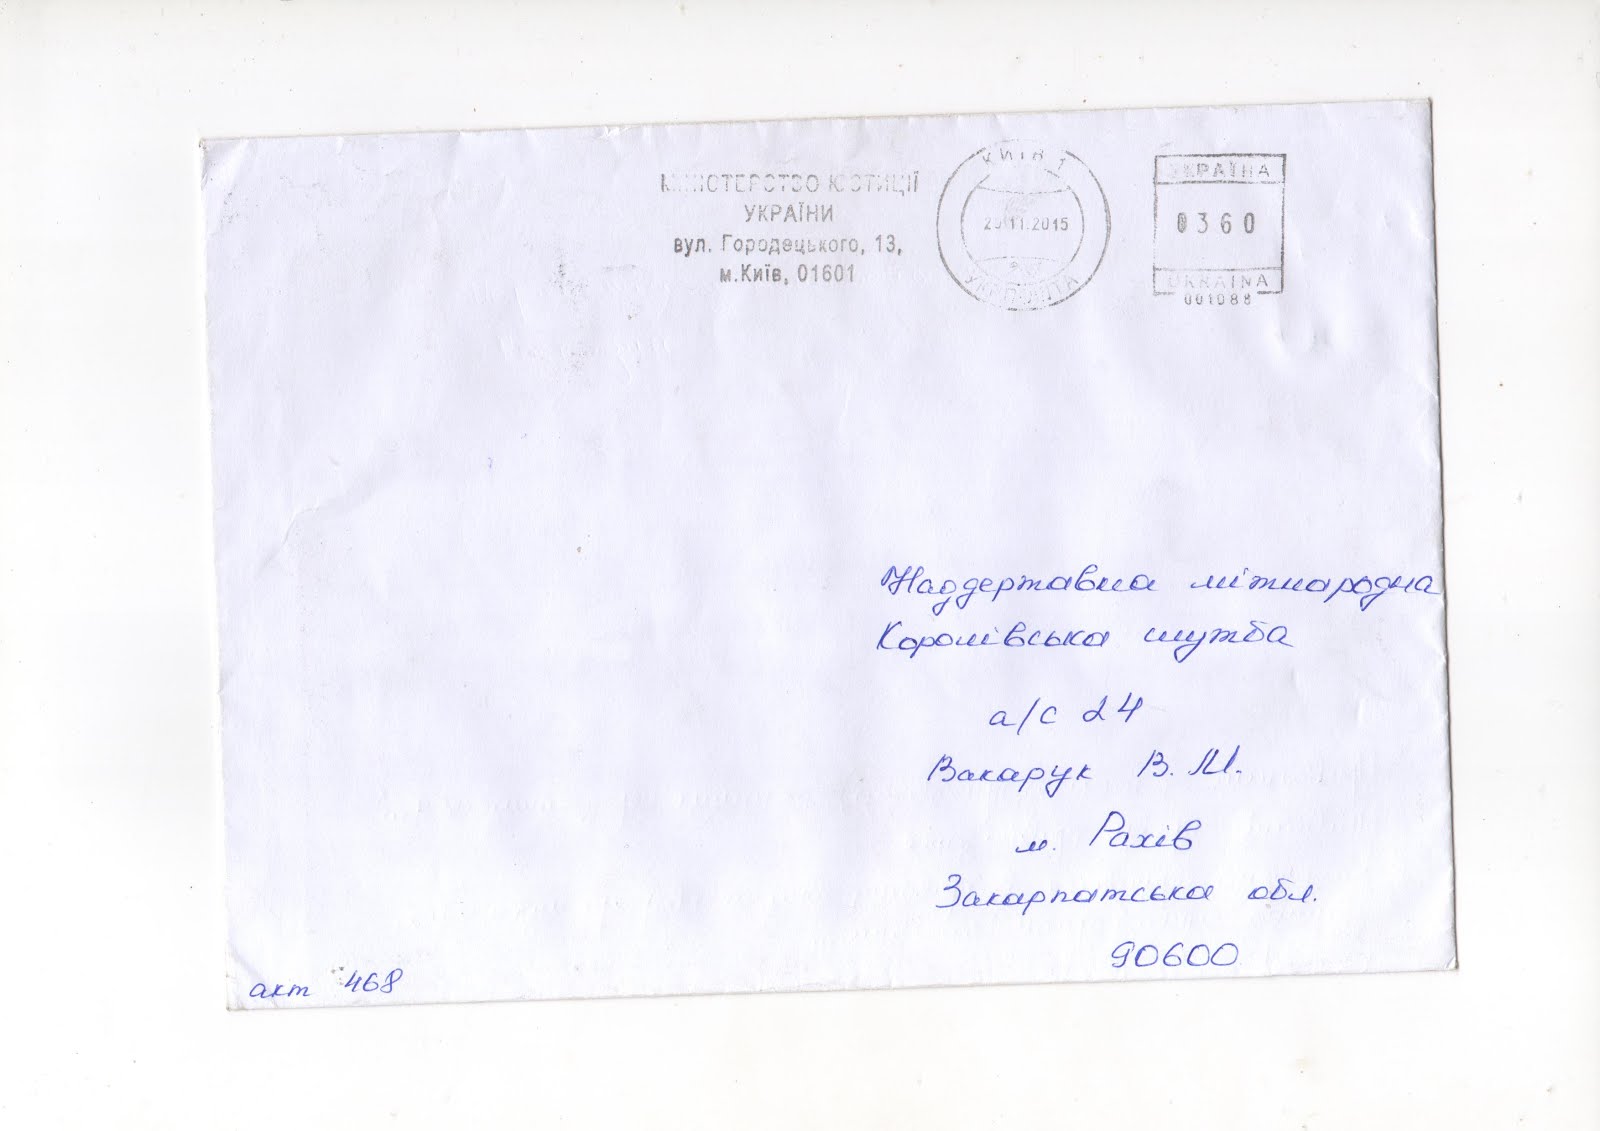 МІНІСТЕРСТВО ЮСТИЦІЇ
УКРАЇНИ
вул. Городецького, 13,
м.Київ, 01601
КИЇВ 1
11.2015
УКРПОШТА
УКРАЇНА
0360
UKRAINA
001088
Наддержавна міжнародна
Королівська служба
а/с 24
Вакарук В. М.
м. Рахів
Закарпатська обл.
90600
акт 468